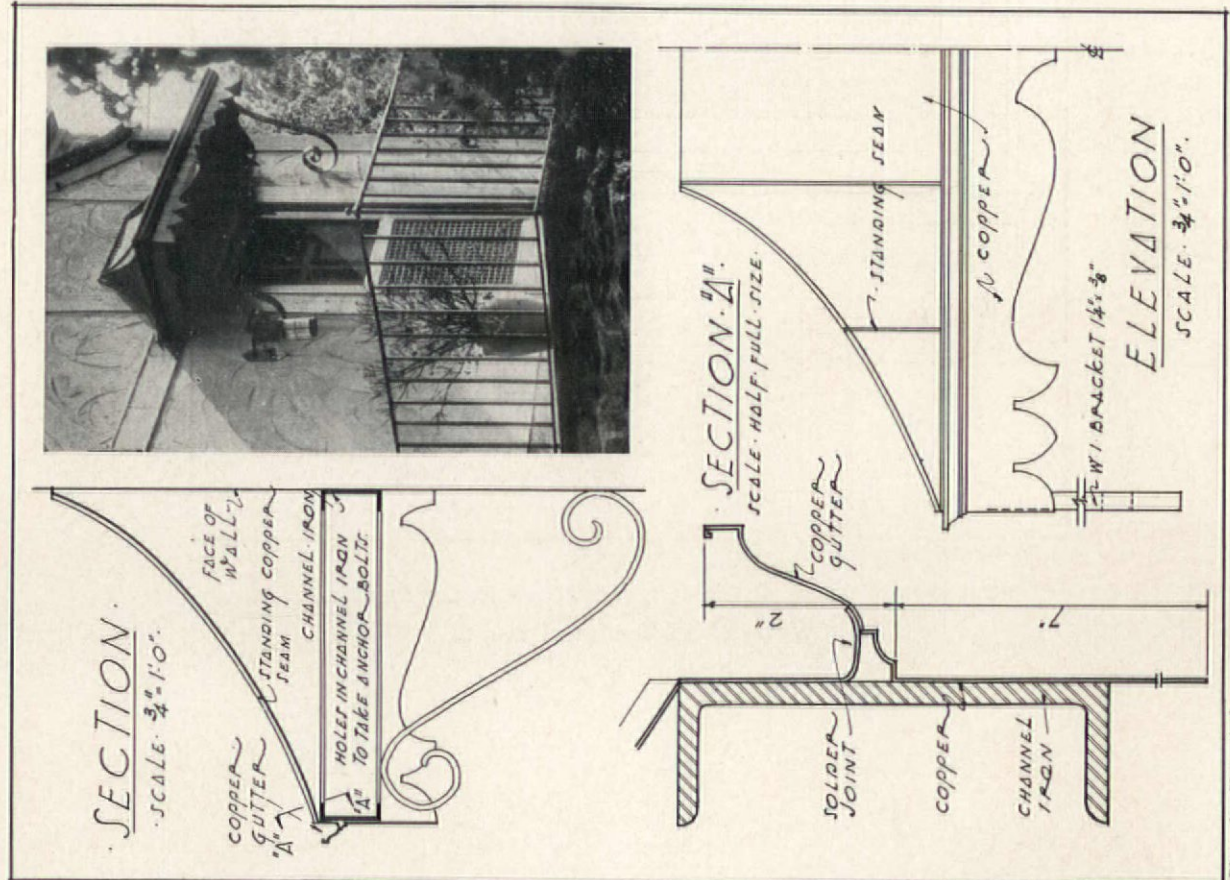 ·SECTION·
·SCALE· 3/4"=1'·0"·
COPPER
GUTTER
"A"
FACE OF
WALL
STANDING COPPER
SEAM
CHANNEL·IRON
HOLES IN CHANNEL IRON
TO TAKE ANCHOR BOLTS.
"A"
·SECTION·"A"·
SCALE·HALF·FULL·SIZE·
COPPER
GUTTER
2"
7"
SOLDER
JOINT
COPPER
CHANNEL
IRON
STANDING SEAM
COPPER
W I BRACKET 1¼"x⅜"
ELEVATION
SCALE· 3/4"=1'·0"·